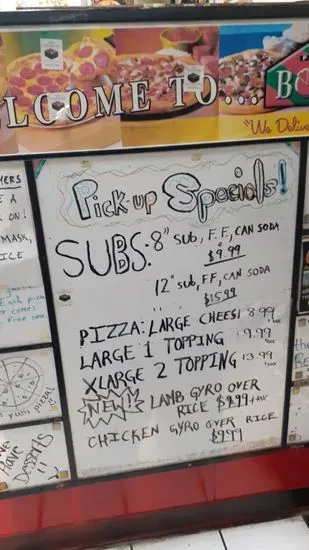 ELCOME TO... BO
"We Delive
Pick-up Specials!
SUBS: 8" SUB, F.F, CAN SODA
$9.99
12" SUB, FF, CAN SODA
$15.99
PIZZA: LARGE CHEESE 8.99
LARGE 1 TOPPING 9.99
XLARGE 2 TOPPING 13.99
NEW! LAMB GYRO OVER
RICE $9.99 + tax
CHICKEN GYRO OVER RICE
$9.99
YERS
E A
ON!
MASK,
ICE
Each pizza
comes
free one
yum pizza!
We Have
Desserts